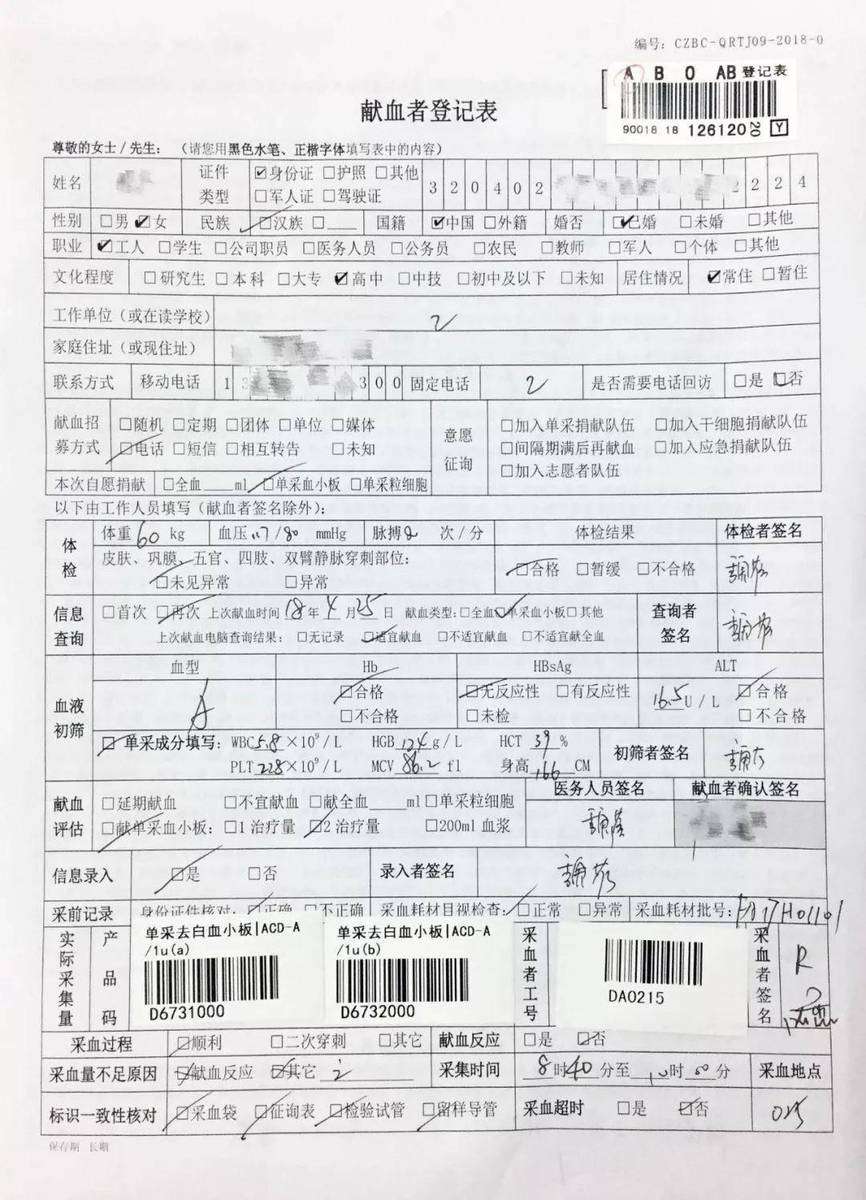 编号：CZBC-QRTJ09-2018-0
A B O AB 登记表
90018 18 126120 20 Y
献血者登记表
尊敬的女士/先生：（请您用黑色水笔、正楷字体填写表中的内容）
姓名 证件类型 ☑身份证 □护照 □其他 □军人证 □驾驶证 320402 2224
性别 □男 ☑女 民族 ☑汉族 □ 国籍 ☑中国 □外籍 婚否 ☑已婚 □未婚 □其他
职业 ☑工人 □学生 □公司职员 □医务人员 □公务员 □农民 □教师 □军人 □个体 □其他
文化程度 □研究生 □本科 □大专 ☑高中 □中技 □初中及以下 □未知 居住情况 ☑常住 □暂住
工作单位（或在读学校）
家庭住址（或现住址）
联系方式 移动电话 1 300 固定电话 是否需要电话回访 □是 ☑否
献血招募方式 □随机 □定期 □团体 □单位 □媒体
☑电话 □短信 □相互转告 □未知
意愿征询 □加入单采捐献队伍 □加入干细胞捐献队伍
□间隔期满后再献血 □加入应急捐献队伍
□加入志愿者队伍
本次自愿捐献 □全血 ml ☑单采血小板 □单采粒细胞
以下由工作人员填写（献血者签名除外）：
体检 体重 60 kg 血压 117/80 mmHg 脉搏 次/分 体检结果 体检者签名
皮肤、巩膜、五官、四肢、双臂静脉穿刺部位：
☑未见异常 □异常 ☑合格 □暂缓 □不合格
信息查询 □首次 ☑再次 上次献血时间 18 年 4 月 25 日 献血类型：□全血 ☑单采血小板 □其他 查询者签名
上次献血电脑查询结果：□无记录 ☑适宜献血 □不适宜献血 □不适宜献全血
血液初筛 血型 Hb HBsAg ALT
A ☑合格 □不合格 ☑无反应性 □有反应性 □未检 16.5 U/L ☑合格 □不合格
☑单采成分填写：WBC 5.8 ×10⁹/L HGB 124 g/L HCT 39 % 初筛者签名
PLT 228 ×10⁹/L MCV 86.2 fl 身高 166 CM
献血评估 □延期献血 □不宜献血 □献全血 ml □单采粒细胞 医务人员签名 献血者确认签名
☑献单采血小板：□1治疗量 ☑2治疗量 □200ml血浆
信息录入 ☑是 □否 录入者签名
采前记录 身份证件核对：☑正确 □不正确 采血耗材目视检查：☑正常 □异常 采血耗材批号：
实际采集量 产品码 单采去白血小板|ACD-A/1u(a) D6731000
单采去白血小板|ACD-A/1u(b) D6732000
采血者工号 DA0215 采血者签名
采血过程 ☑顺利 □二次穿刺 □其它 献血反应 □是 ☑否
采血量不足原因 ☑献血反应 ☑其它 采集时间 8 时 40 分至 10 时 00 分 采血地点
标识一致性核对 ☑采血袋 ☑征询表 ☑检验试管 ☑留样导管 采血超时 □是 ☑否
保存期 长期